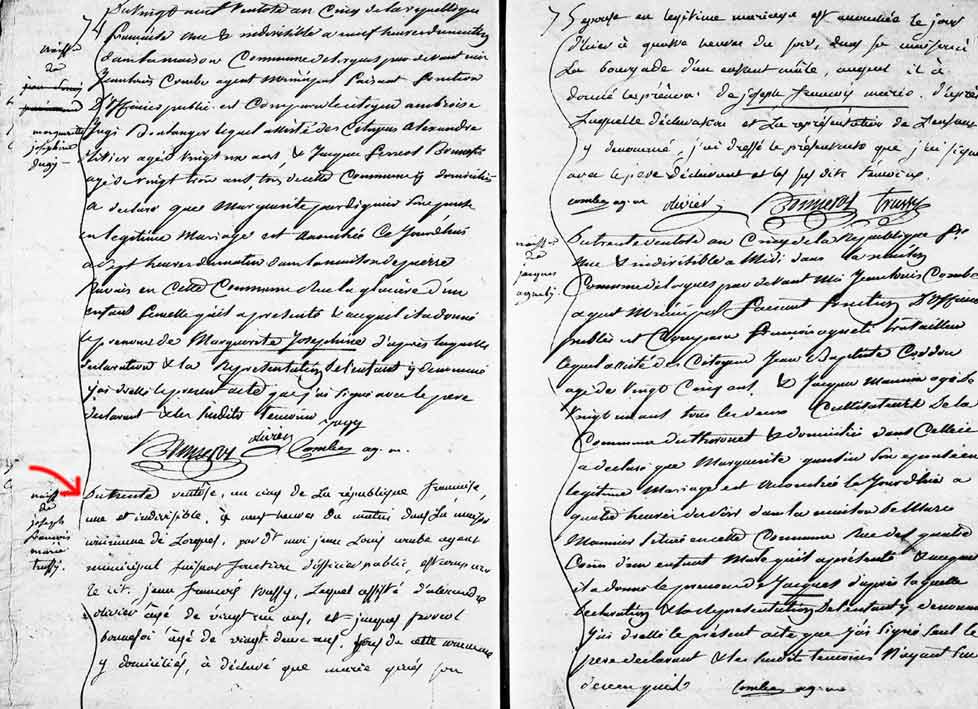 74
Du vingt neuf ventose an Cinq de la republique
francaise une & indivisible a neuf heures du matin
dans la maison Commune de Lorgues par devant moi
Jean Louis Combe agent Municipal faisant fonction
D'officier public est Comparu le citoyen ambroise
Jugi Boulanger lequel assisté des Citoyens Alexandre
olivier agé de vingt un ans, & Jacques ferreol Bonnefoi
agé de vingt trois ans, tous de cette Commune y domiciliés
a declaré que Marguerite son epouse
en legitime Mariage est accouchée Ce Jourd'hui
a sept heures du matin dans la maison de pierre
en Cette Commune rue la glacière d'un
enfant femelle qu'il a presenté & auquel il a donné
le prenom de Marguerite Josephine d'après laquelle
declaration & la Representation de l'enfant y denommé
J'ai dressé le present acte que j'ai signé avec le pere
declarant & les susdits temoins
Jugy
Bonnefoy olivier Combe ag. m.
naiss.ce
de
marguerite
josephine
Jugi
Du trente ventôse, an cinq de la république francaise,
une et indivisible, à neuf heures du matin dans la maison
commune de Lorgues, par dt moi jean Louis combe agent
municipal faisant fonction d'officier public, est comparu
le cit. jean françois trussy, lequel assisté d'alexandre
olivier âgé de vingt un ans, et jacques ferreol
bonnefoi âgé de vingt-deux ans, tous de cette commune
y domiciliés, à déclaré que marie son
naiss.ce
de
joseph
francois
marie
trussy.
75
epouse en legitime mariage est accouchée le jour
d'hier à quatre heures du soir, dans sa maison à
La bourgade d'un enfant mâle, auquel il à
donné les prénoms de joseph francois marie. d'après
Laquelle déclaration et La représentation de L'enfant
y denommé, j'ai dressé le présent acte que j'ai signé
avec le pere déclarant et les sus dits temoins.
combe ag. m. olivier Bonnefoy trussy
Du trente ventose an Cinq de la Republique fse
une & indivisible a Midi dans la maison
Commune de Lorgues par devant Moi Jean Louis Combe
agent Municipal faisant fonction D'officier
public est Comparu francois travailleur
lequel assisté des Citoyens Jean Baptiste Coddou
agé de Vingt Cinq ans & Jacques Maunier agé de
Vingt un ans tous les deux Cultivateurs de la
Commune du thoronet & domiciliés dans Celle ci
a declaré que Marguerite son epouse en
legitime Mariage est accouchée le Jourd'hui a
quatre heures dans la maison de Marc
Maunier située en cette Commune Rue des quatre
Coins d'un enfant Male qu'il a presenté & auquel
il a donné le prenom de Jacques d'après laquelle
declaration & la Representation de l'enfant y denommé
J'ai dressé le présent acte que j'ai signé seul le
pere declarant & les susdits temoins N'ayant su
Combe ag. m.
naiss.ce
de
jacques